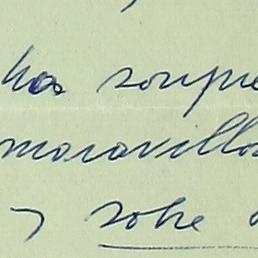 ha sorpre
maravillos
y sobre